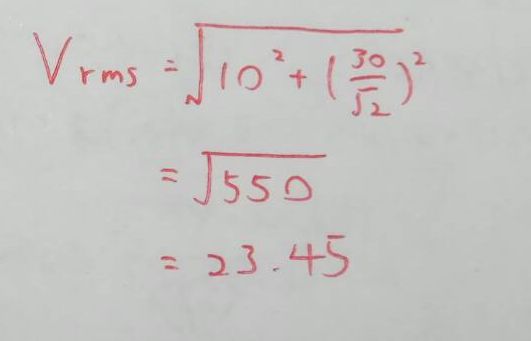 Vrms = √(10² + (30/√2)²)
= √550
= 23.45